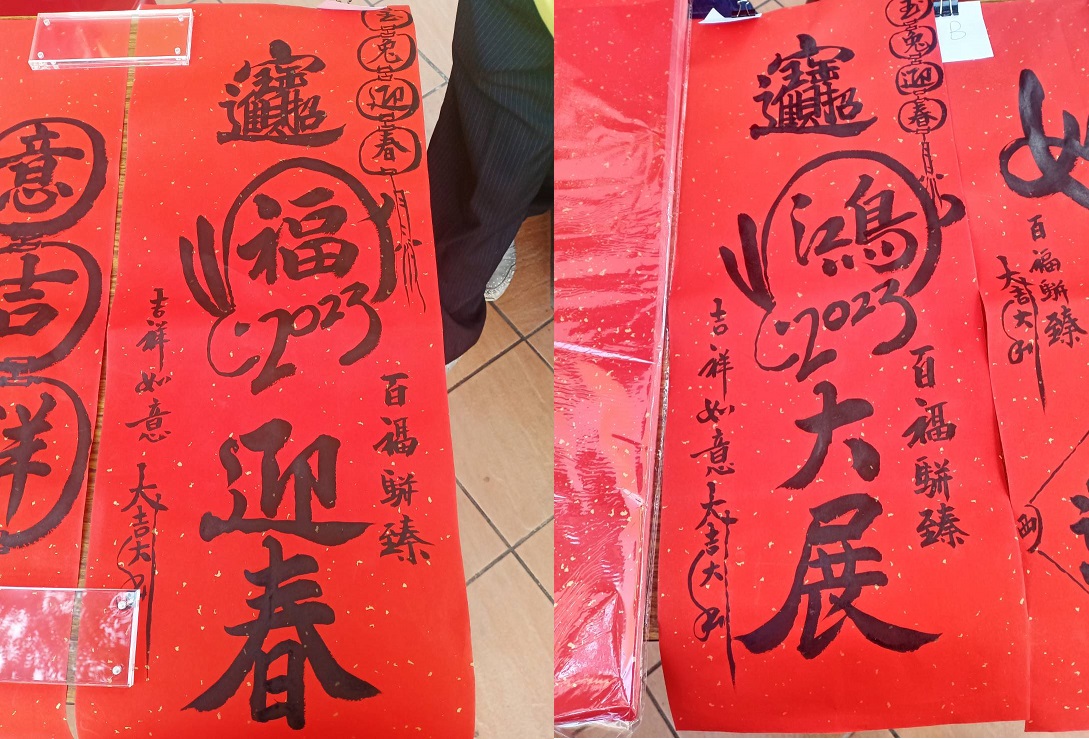 意吉祥
玉兔迎春
招財進寶
福
2023
迎春
百福駢臻
吉祥如意 大吉大利
玉兔迎春
招財進寶
鴻
2023
大展
百福駢臻
吉祥如意 大吉大利
B
百福駢臻
大吉大利